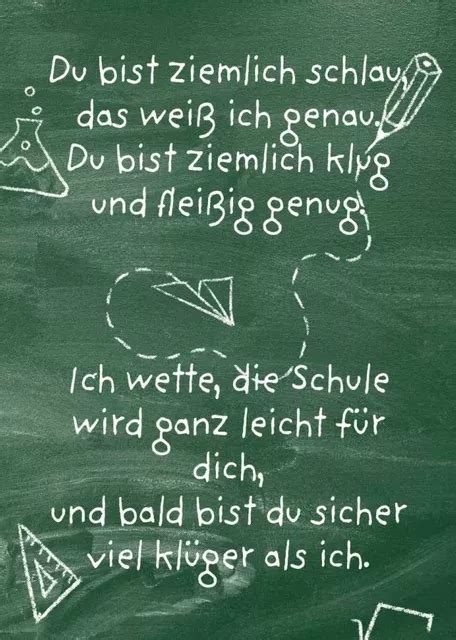 Du bist ziemlich schlau,
das weiß ich genau.
Du bist ziemlich klug
und fleißig genug.
Ich wette, die Schule
wird ganz leicht für
dich,
und bald bist du sicher
viel klüger als ich.